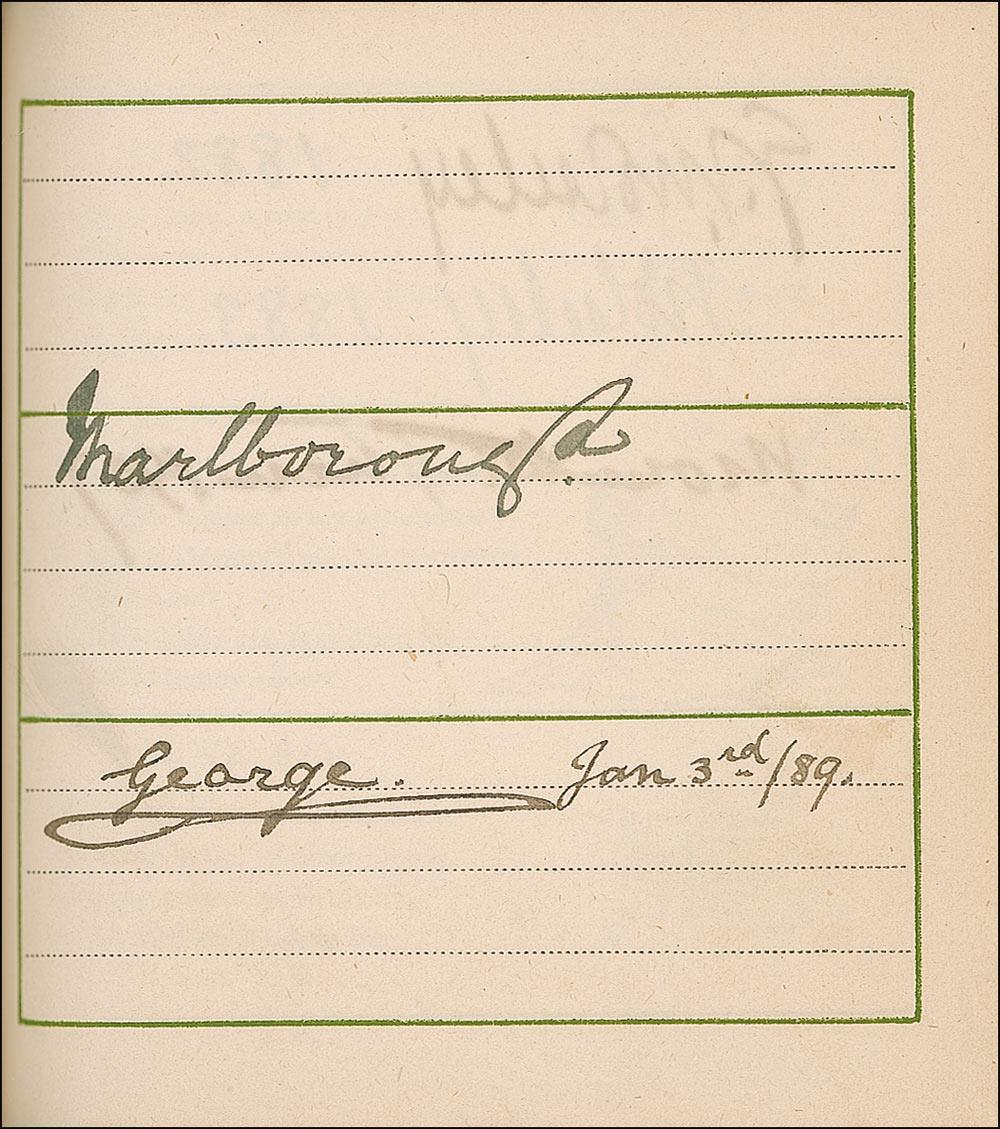 Marlborough
George. Jan 3rd/89.